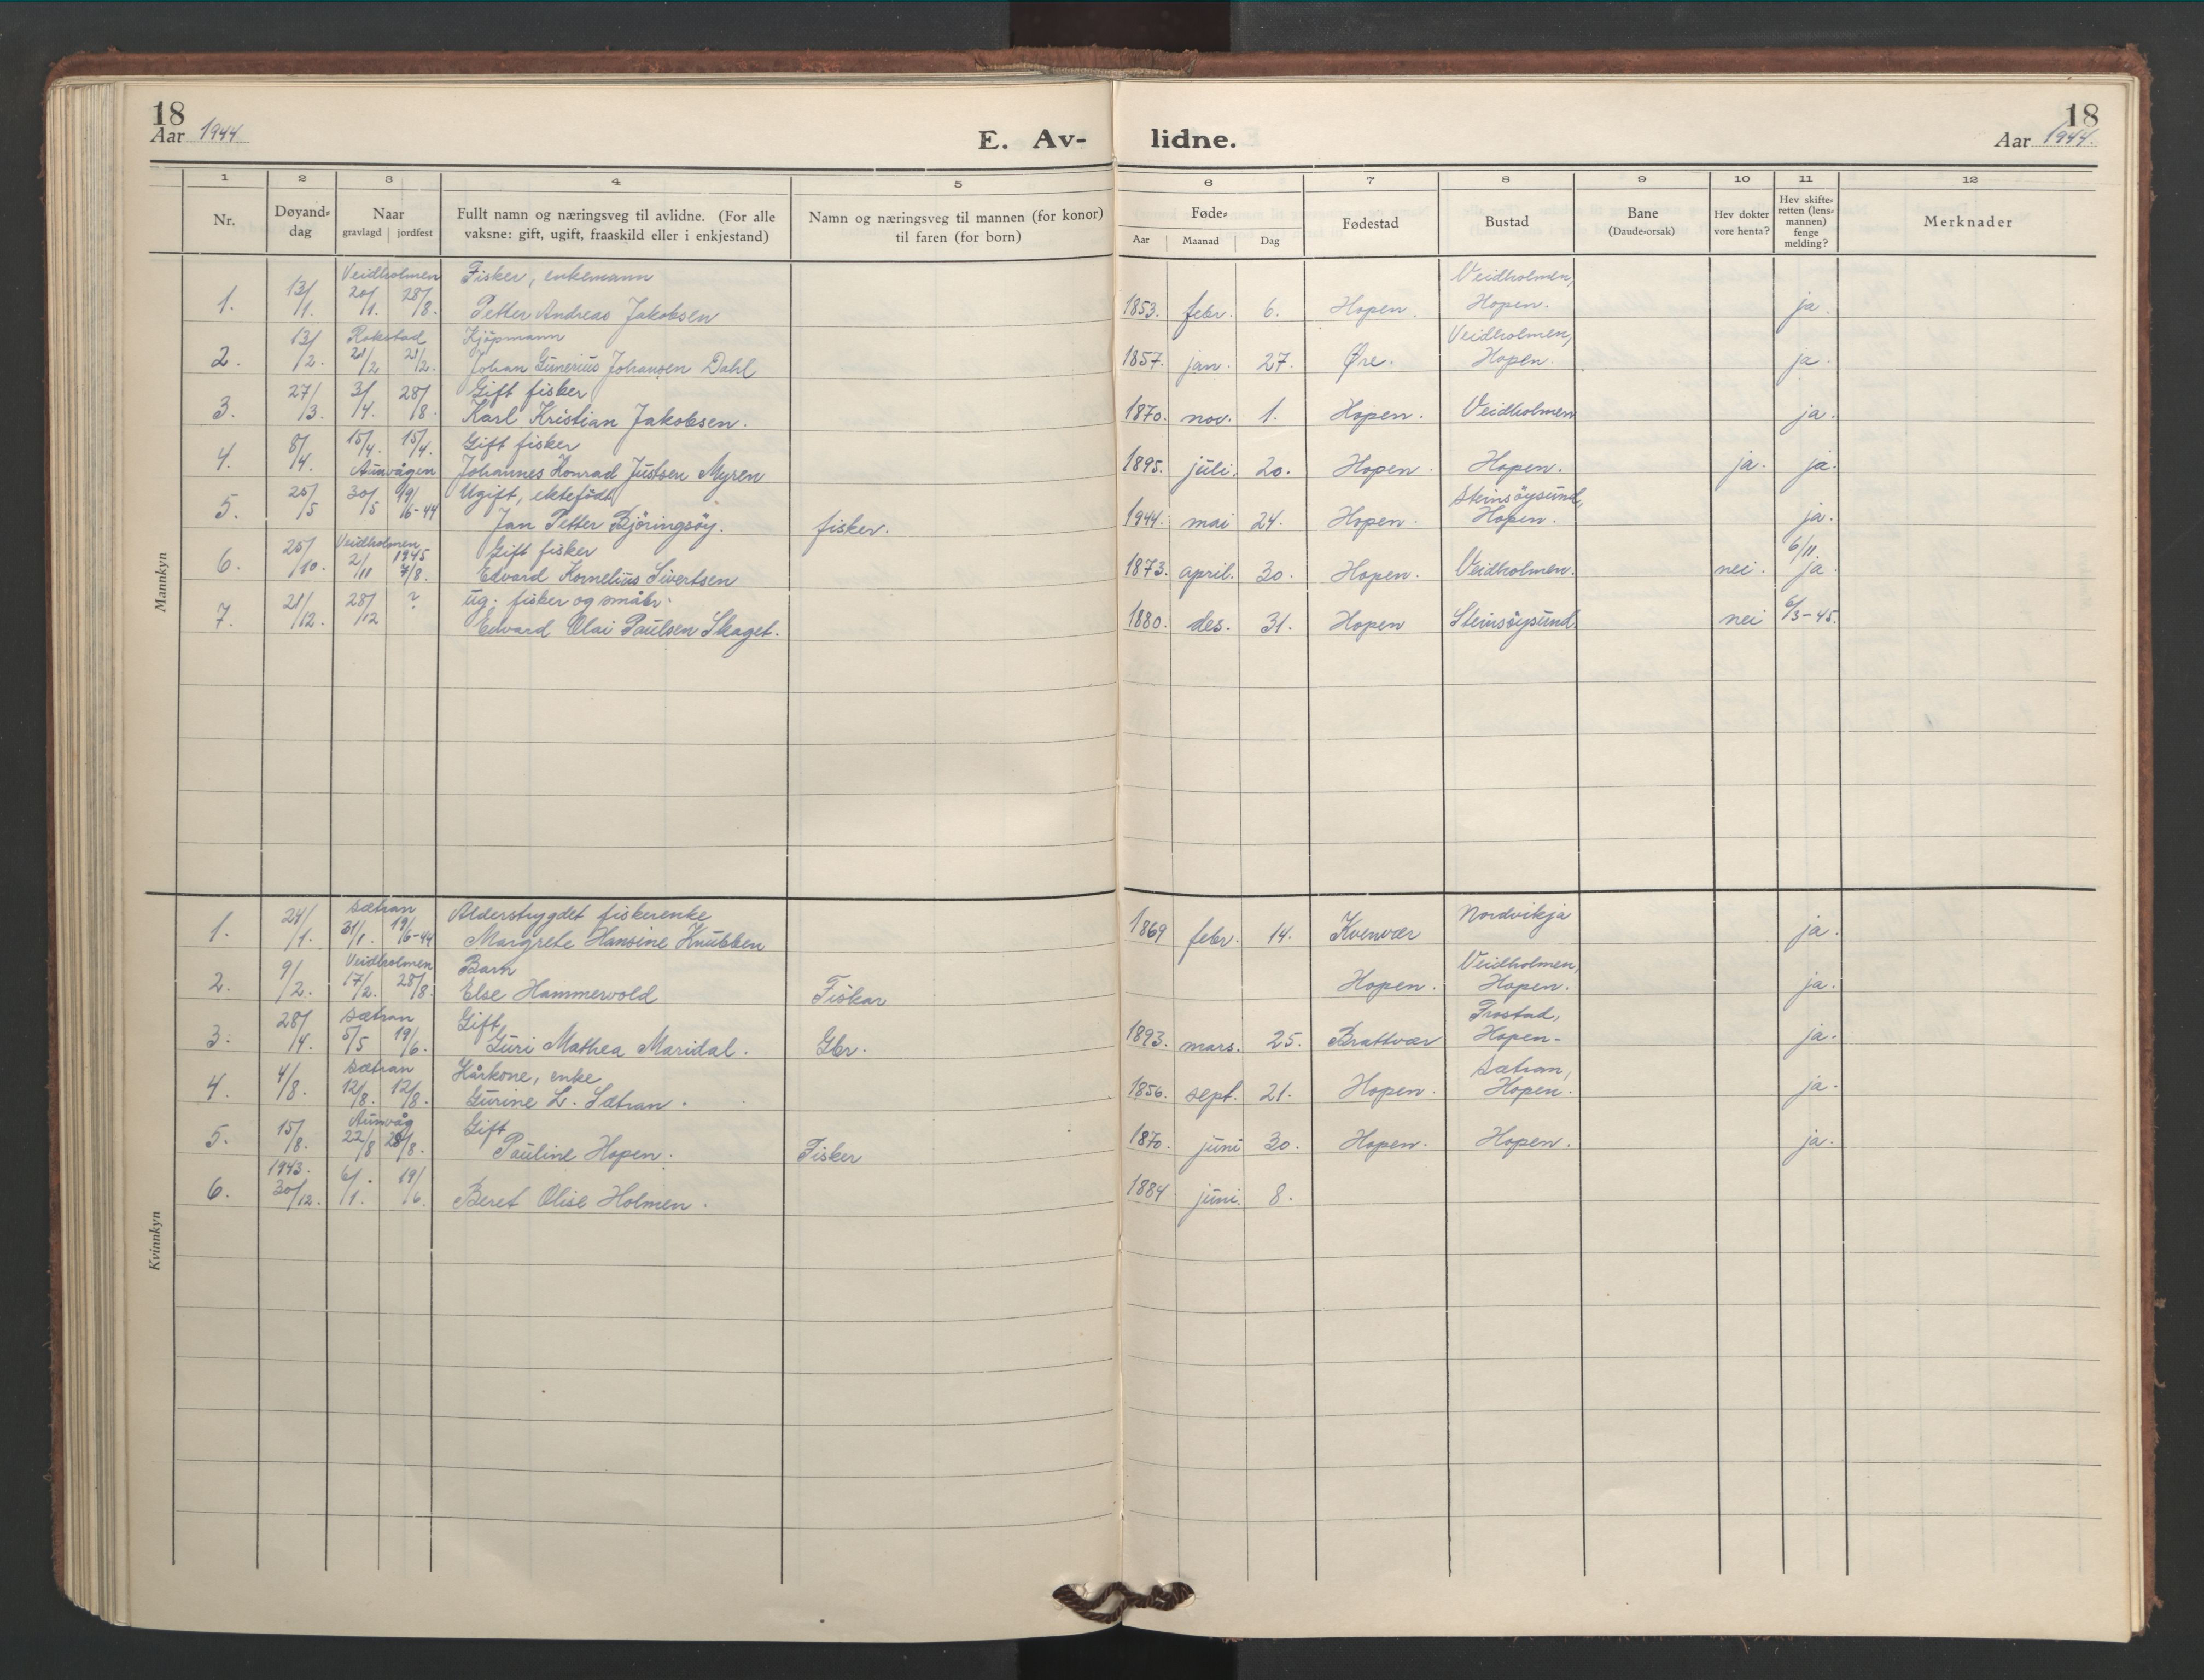 18
Aar 1944
E. Av-
lidne.
18
Aar 1944.
1 2 3 4 5 6 7 8 9 10 11 12
Nr.
Døyand-
dag
Naar
gravlagd | jordfest
Fullt namn og næringsveg til avlidne. (For alle
vaksne: gift, ugift, fraaskild eller i enkjestand)
Namn og næringsveg til mannen (for konor)
til faren (for born)
Føde-
Aar | Maanad | Dag
Fødestad
Bustad
Bane
(Daude-orsak)
Hev dokter
vore henta?
Hev skifte-
retten (lens-
mannen)
fenge
melding?
Merknader
Mannkyn
Veidholmen Fisker, enkemann Veidholmen,
1. 13/1. 20/1. 28/8. Petter Andreas Jakobsen 1853. febr. 6. Hopen. Hopen. ja.
Rokstad Kjöpmann Veidholmen,
2. 13/2. 21/2 21/2. Johan Gunerius Johansen Dahl 1857. jan. 27. Øre. Hopen. ja.
Gift fisker
3. 27/3. 3/4. 28/8. Karl Kristian Jakobsen. 1870. nov. 1. Hopen. Veidholmen ja.
4. 8/4. 15/4. 15/4. Gift fisker
Aunvågen Johannes Konrad Justsen Myren 1895. juli. 20. Hopen. Hopen. ja. ja.
Ugift, ektefødt Steinsöysund,
5. 25/5 30/5 19/6-44 Jan Petter Björingsöy. fisker. 1944. mai 24. Hopen. Hopen. ja.
Veidholmen 1945 Gift fisker 6/11.
6. 25/10. 2/11 7/8. Edvard Kornelius Sivertsen 1873. april. 30. Hopen. Veidholmen. nei. ja.
ug. fisker og småbr.
7. 21/12. 28/12 ? Edvard Olai Paulsen Skaget. 1880. des. 31. Hopen Steinsöysund. nei 6/3-45.
Kvinnkyn
Sætran Alderstrygdet fiskerenke Nordvikja
1. 24/1. 31/1. 19/6-44 Margrete Hansine Knubben 1869 febr. 14. Kvenvær ja.
Veidholmen Barn Veidholmen,
2. 9/2. 17/2. 28/8. Else Hammervold Fiskar Hopen. Hopen. ja.
Sætran Gift Frostad,
3. 28/4. 5/5 19/6. Guri Mathea Maridal. Gbr. 1893. mars. 25. Brattvær Hopen- ja.
Sætran Kårkone, enke Sætran,
4. 4/8. 12/8. 12/8. Gurine L. Sætran. 1856. sept. 21. Hopen. Hopen. ja.
Aunvåg Gift
5. 15/8. 22/8 28/8. Pauline Hopen. Fisker 1870. juni 30. Hopen. Hopen. ja.
1943.
6. 30/12. 6/1. 19/6. Beret Olise Holmen. 1884 juni. 8.